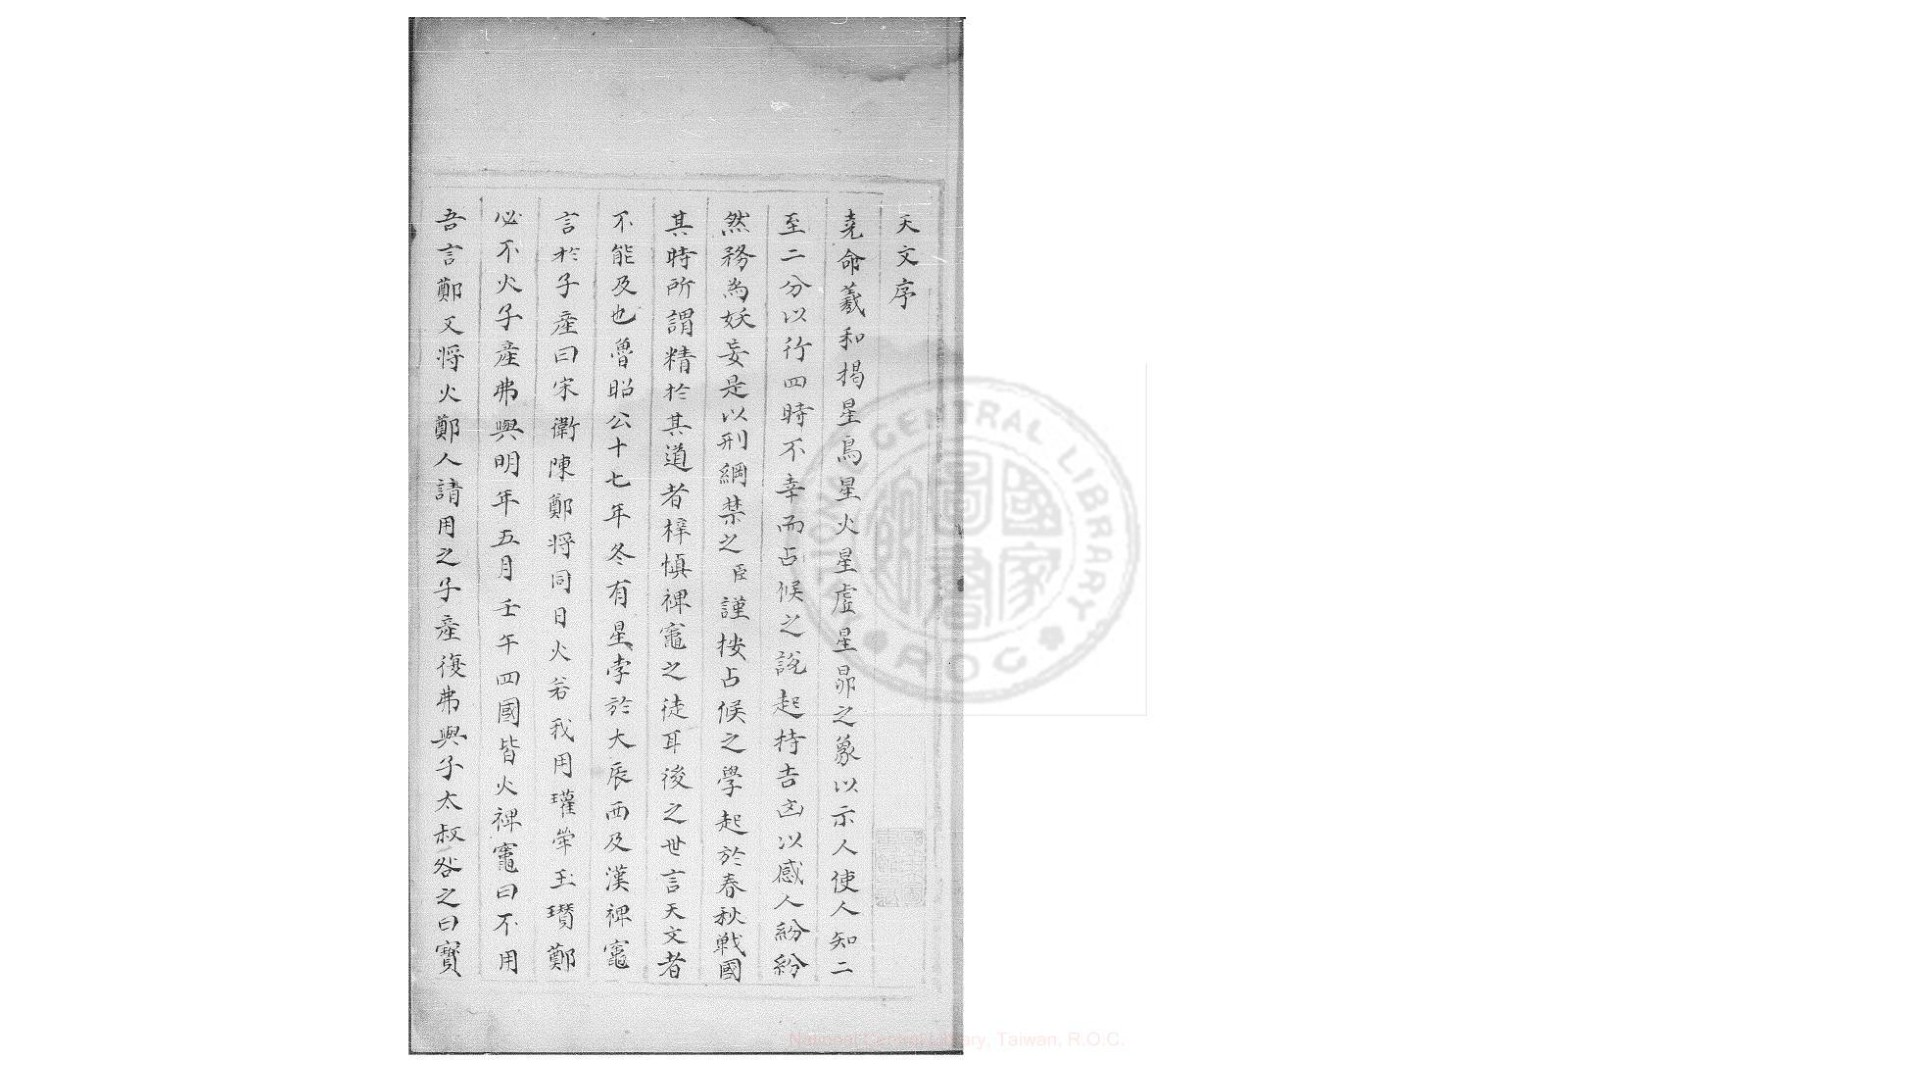 天文序
堯命羲和揭星鳥星火星虛星昴之象以示人使人知二
至二分以行四時不幸而占候之說起持吉凶以感人紛紛
然務為妖妄是以刑綱禁之臣謹按占候之學起於春秋戰國
其時所謂精於其道者梓慎裨竈之徒耳後之世言天文者
不能及也魯昭公十七年冬有星孛於大辰西及漢裨竈
言於子產曰宋衛陳鄭將同日火若我用瓘斝玉瓚鄭
必不火子產弗與明年五月壬午四國皆火裨竈曰不用
吾言鄭又將火鄭人請用之子產復弗與子太叔咎之曰寶
NATIONAL CENTRAL LIBRARY
R O C
國家圖書館
National Central Library, Taiwan, R.O.C.